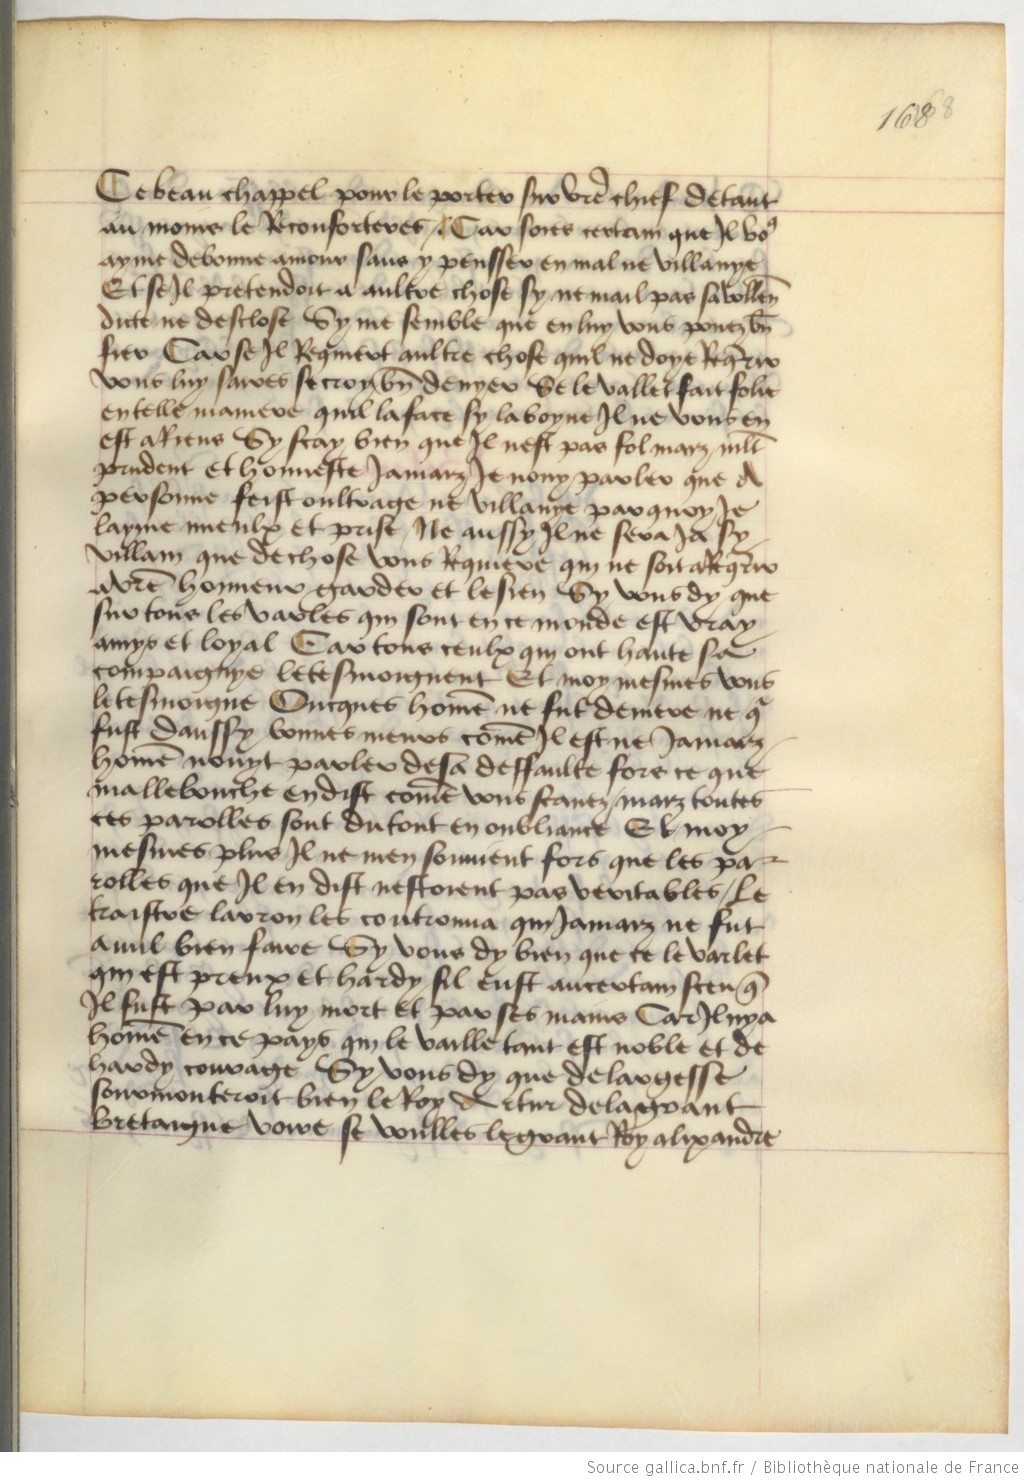 168
Ce beau chappel pour le porter sur vrē chief de tant
au moins le Reconforteres / Car soies certain que Il vo9
ayme de bonne amour sans y pensser en mal ne villanye
Et se Il pretendoit a aultre chose sy ne mail pas sa vollēn
dicte ne desclose Sy me semble que en luy vous pouez bn̄
fier Car se Il Requiert aultre chose quil ne doye Reqrir
vous luy sares se croy bn̄ denyer Se le vallet fait folie
en telle maniere quil la face sy la boyue Il ne vous en
est a Riens Sy scay bien que Il nest pas fol marz
prudent et honneste Jamarz Je nouy parler que A
personne feist oultrage ne villanye par quoy Je
layme mieulx et prise Ne aussy Il ne sera Ja sy
villain que de chose vous Requiere qui ne soit a Reqrir
a vrē honneur garder et le sien Sy vous dy que
sur tous les varles qui sont en ce monde est vray
amys et loyal Car tous ceulx qui ont hante sa
compaignye le tesmoignent Et moy mesmes vous
le tesmoigne Oncques homē ne fut de mere ne q
fust daussy bonnes meurs comē Il est ne Jamarz
homē nouyt parler de sa deffaulte fors ce que
mallebouche en dist comē vous scauez / marz toutes
ces parolles sont du tout en oubliance Et moy
mesmes plus Il ne men souuient fors que les pa-
rolles que Il en dist nestoient pas veritables / Le
traistre larron les controuua qui Jamarz ne fut
a nul bien faire Sy vous dy bien que ce le varlet
qui est preux et hardy sil eust au certain sceu q̄
Il fust par luy mort et par ses mains Car Il nya
homē en ce pays qui le vaille tant est noble et de
hardy courage Sy vous dy que de largesse
sourmonteroit bien le Roy Artur de la grant
bretaigne voire se voulles le grant Roy alixandre
Source gallica.bnf.fr / Bibliothèque nationale de France